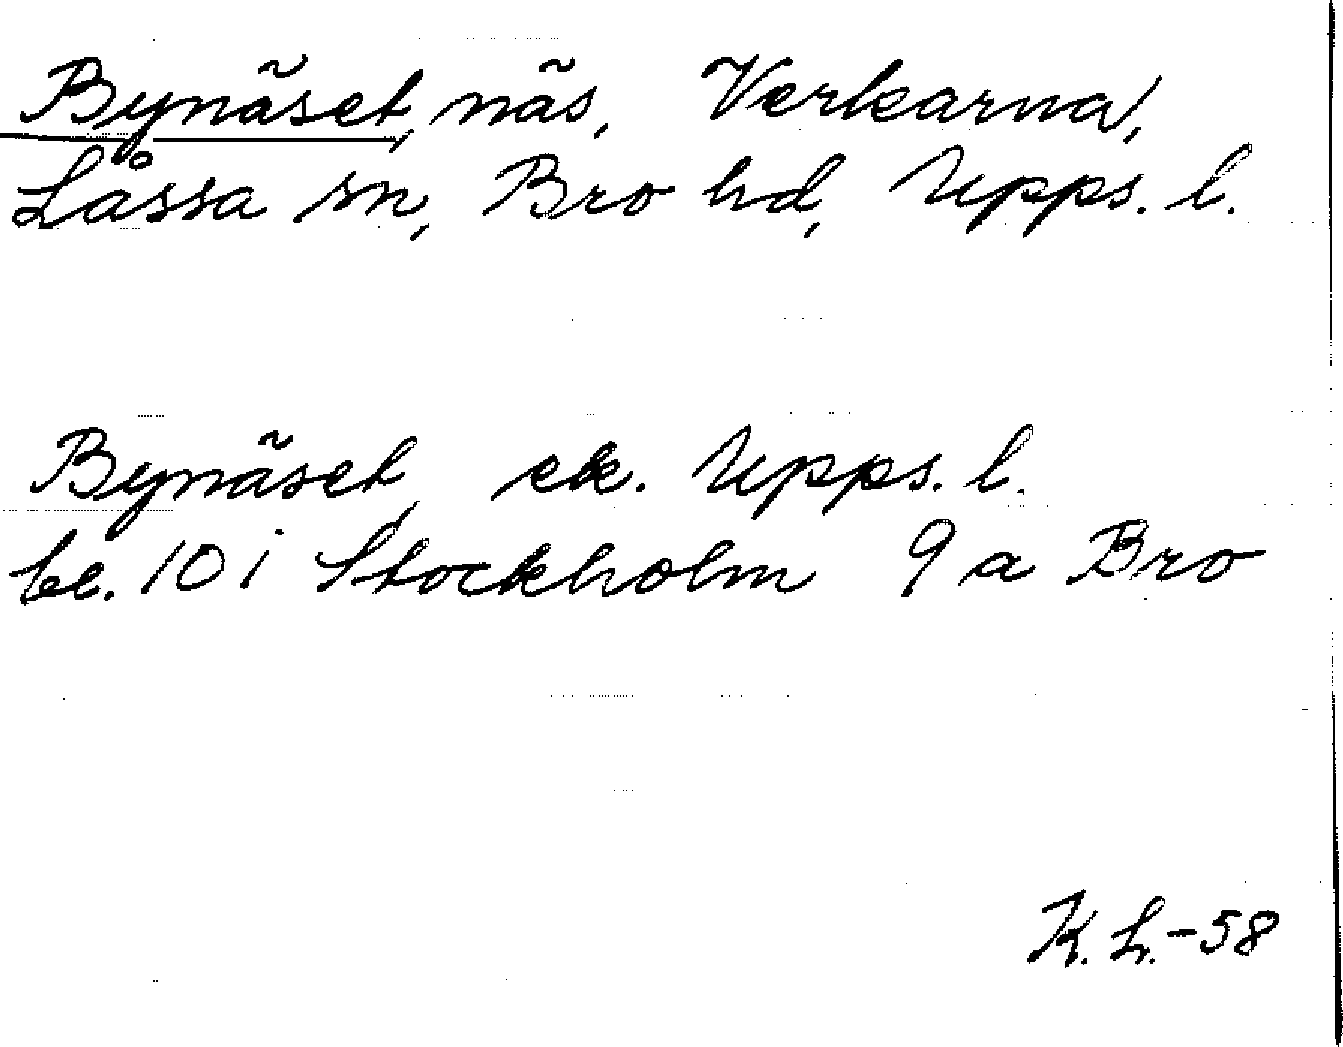 Bynäset, näs, Verkarna,
Låssa sn, Bro hd, Upps. l.
Bynäset, ek. Upps. l.
bl. 101 Stockholm 9 a Bro
K. L. - 58